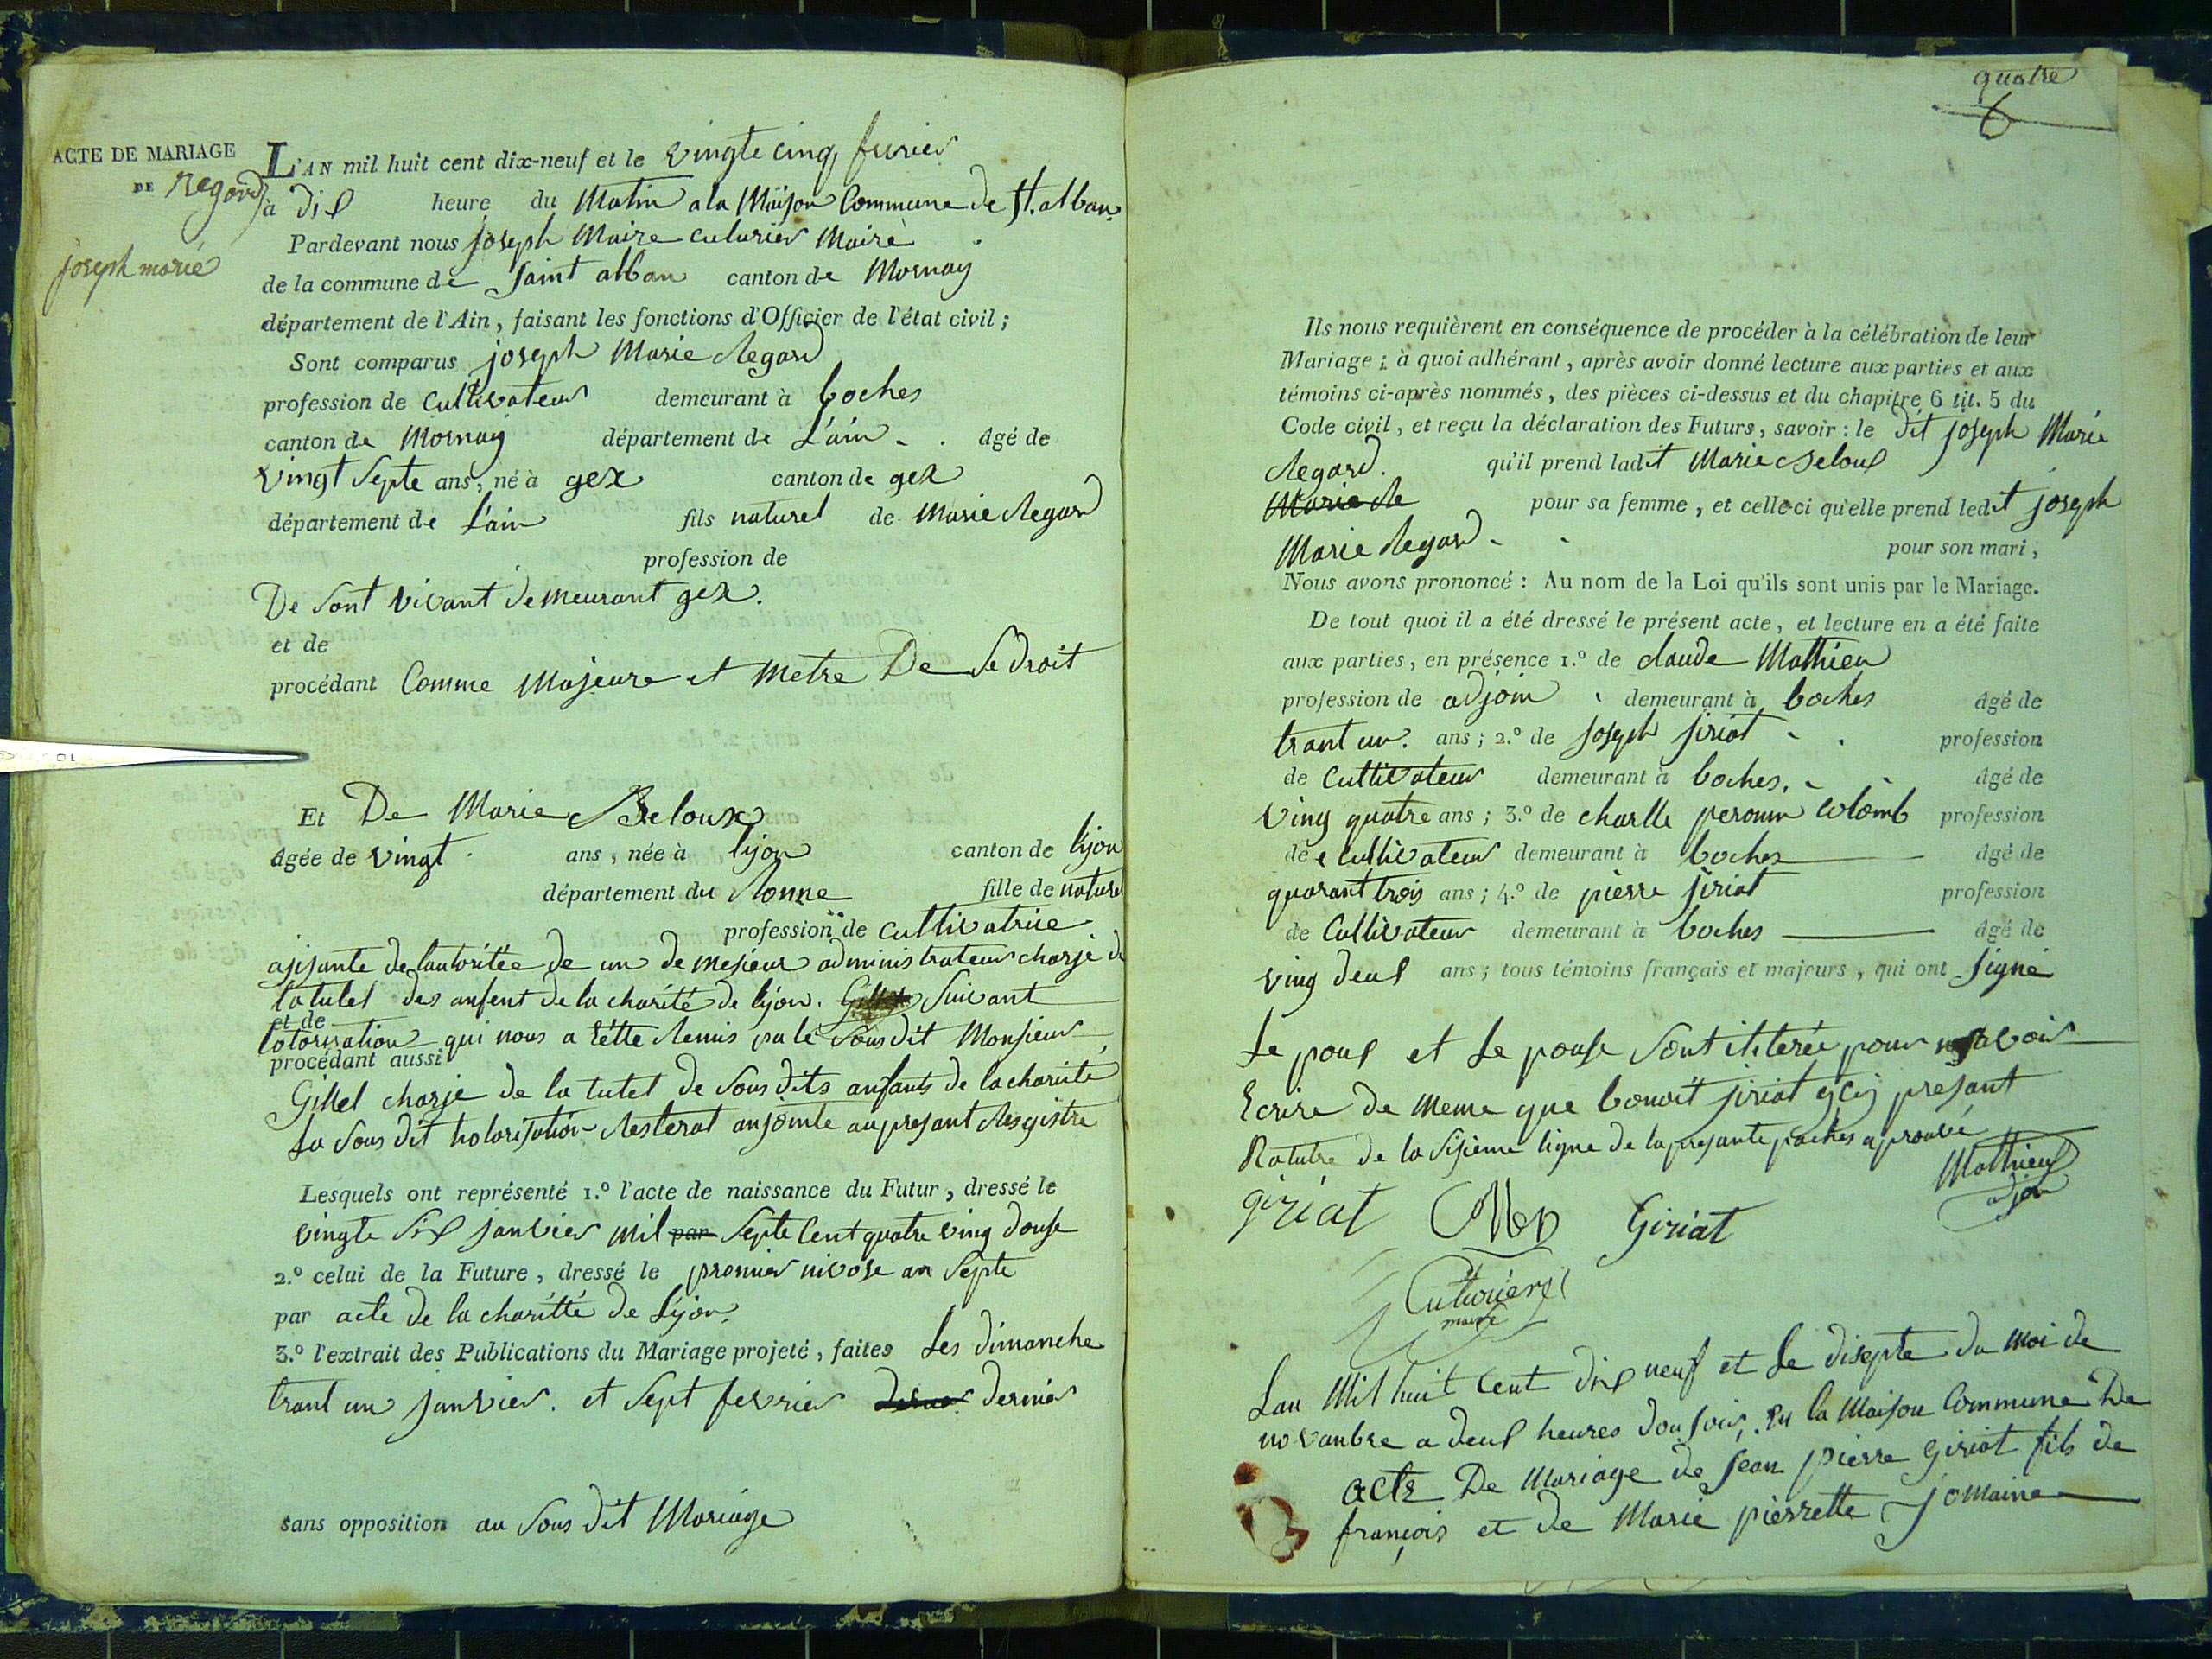 ACTE DE MARIAGE
DE Regard
joseph marie
L'AN mil huit cent dix-neuf et le vingte cinq fevrier
à dix heure du Matin a la Maison Commune de St. alban
Pardevant nous joseph Marie culurier Maire
de la commune de Saint alban canton de Mornay
département de l'Ain, faisant les fonctions d'Officier de l'état civil ;
Sont comparus joseph Marie Regard
profession de Cultivateur demeurant à boches
canton de Mornay département de L'ain âgé de
vingt septe ans, né à gex canton de gex
département de L'ain fils naturel de Marie Regard
profession de
De sont vivant demeurant gex.
et de
procédant Comme Majeure et Metre De Se droit
Et De Marie Beloux
âgée de vingt ans, née à lijon canton de lijon
département du Ronne fille de naturel
profession de cultivatrice
de lautoritée de un de mesieur administrateur charjé de
la tutel des anfent de la charité de lijon. suivant
et de
lotorisation qui nous a Eétte Remis pa le sous dit Monsieur
procédant aussi
Gillel charje de la tutel de sous dits anfants de la charité
La sous dit hotorisation Resterat anjointe au presant Resgistre
Lesquels ont représenté 1.º l'acte de naissance du Futur, dressé le
vingte six janvier mil par septe Cent quatre ving douse
2.º celui de la Future, dressé le promier nivose an septe
par acte de la charitté de Lijon,
3.º l'extrait des Publications du Mariage projeté, faites Les dimanche
trant un janvier. et sept fevrier dernier
sans opposition au sous dit Mariage
quatre
6
Ils nous requièrent en conséquence de procéder à la célébration de leur
Mariage ; à quoi adhérant, après avoir donné lecture aux parties et aux
témoins ci-après nommés, des pièces ci-dessus et du chapitre 6 tit. 5 du
Code civil, et reçu la déclaration des Futurs, savoir : le dit joseph Marie
Regard. qu'il prend ladit Marie Beloux
Marie Re pour sa femme, et celle-ci qu'elle prend ledit joseph
Marie Regard pour son mari,
Nous avons prononcé : Au nom de la Loi qu'ils sont unis par le Mariage.
De tout quoi il a été dressé le présent acte, et lecture en a été faite
aux parties, en présence 1.º de claude Mathieu
profession de adjoin demeurant à boches âgé de
trant un. ans ; 2.º de joseph jiriat profession
de Cultivateur demeurant à boches. âgé de
ving quatre ans ; 3.º de charlle colomb profession
de Cultivateur demeurant à boches âgé de
quarant trois ans ; 4.º de pierre jiriat profession
de Cultivateur demeurant à boches âgé de
ving deux ans ; tous témoins français et majeurs, qui ont signé
Le poux et Le pouse sont iliterée pour savoir
Ecrire de meme que benoit jiriat presant
Rature de la sisieme ligne de la presante paches aprouvé
Mathieu
adjoin
giriat Giriat
Culurier
maire
Lan Mil huit Cent dix neuf et Le disepte du Moi de
novanbre a deux heures dou soir, En la Maison Commune De
acte De Mariage de jean pierre Giriat fils de
françois et de Marie pierrette jomaine